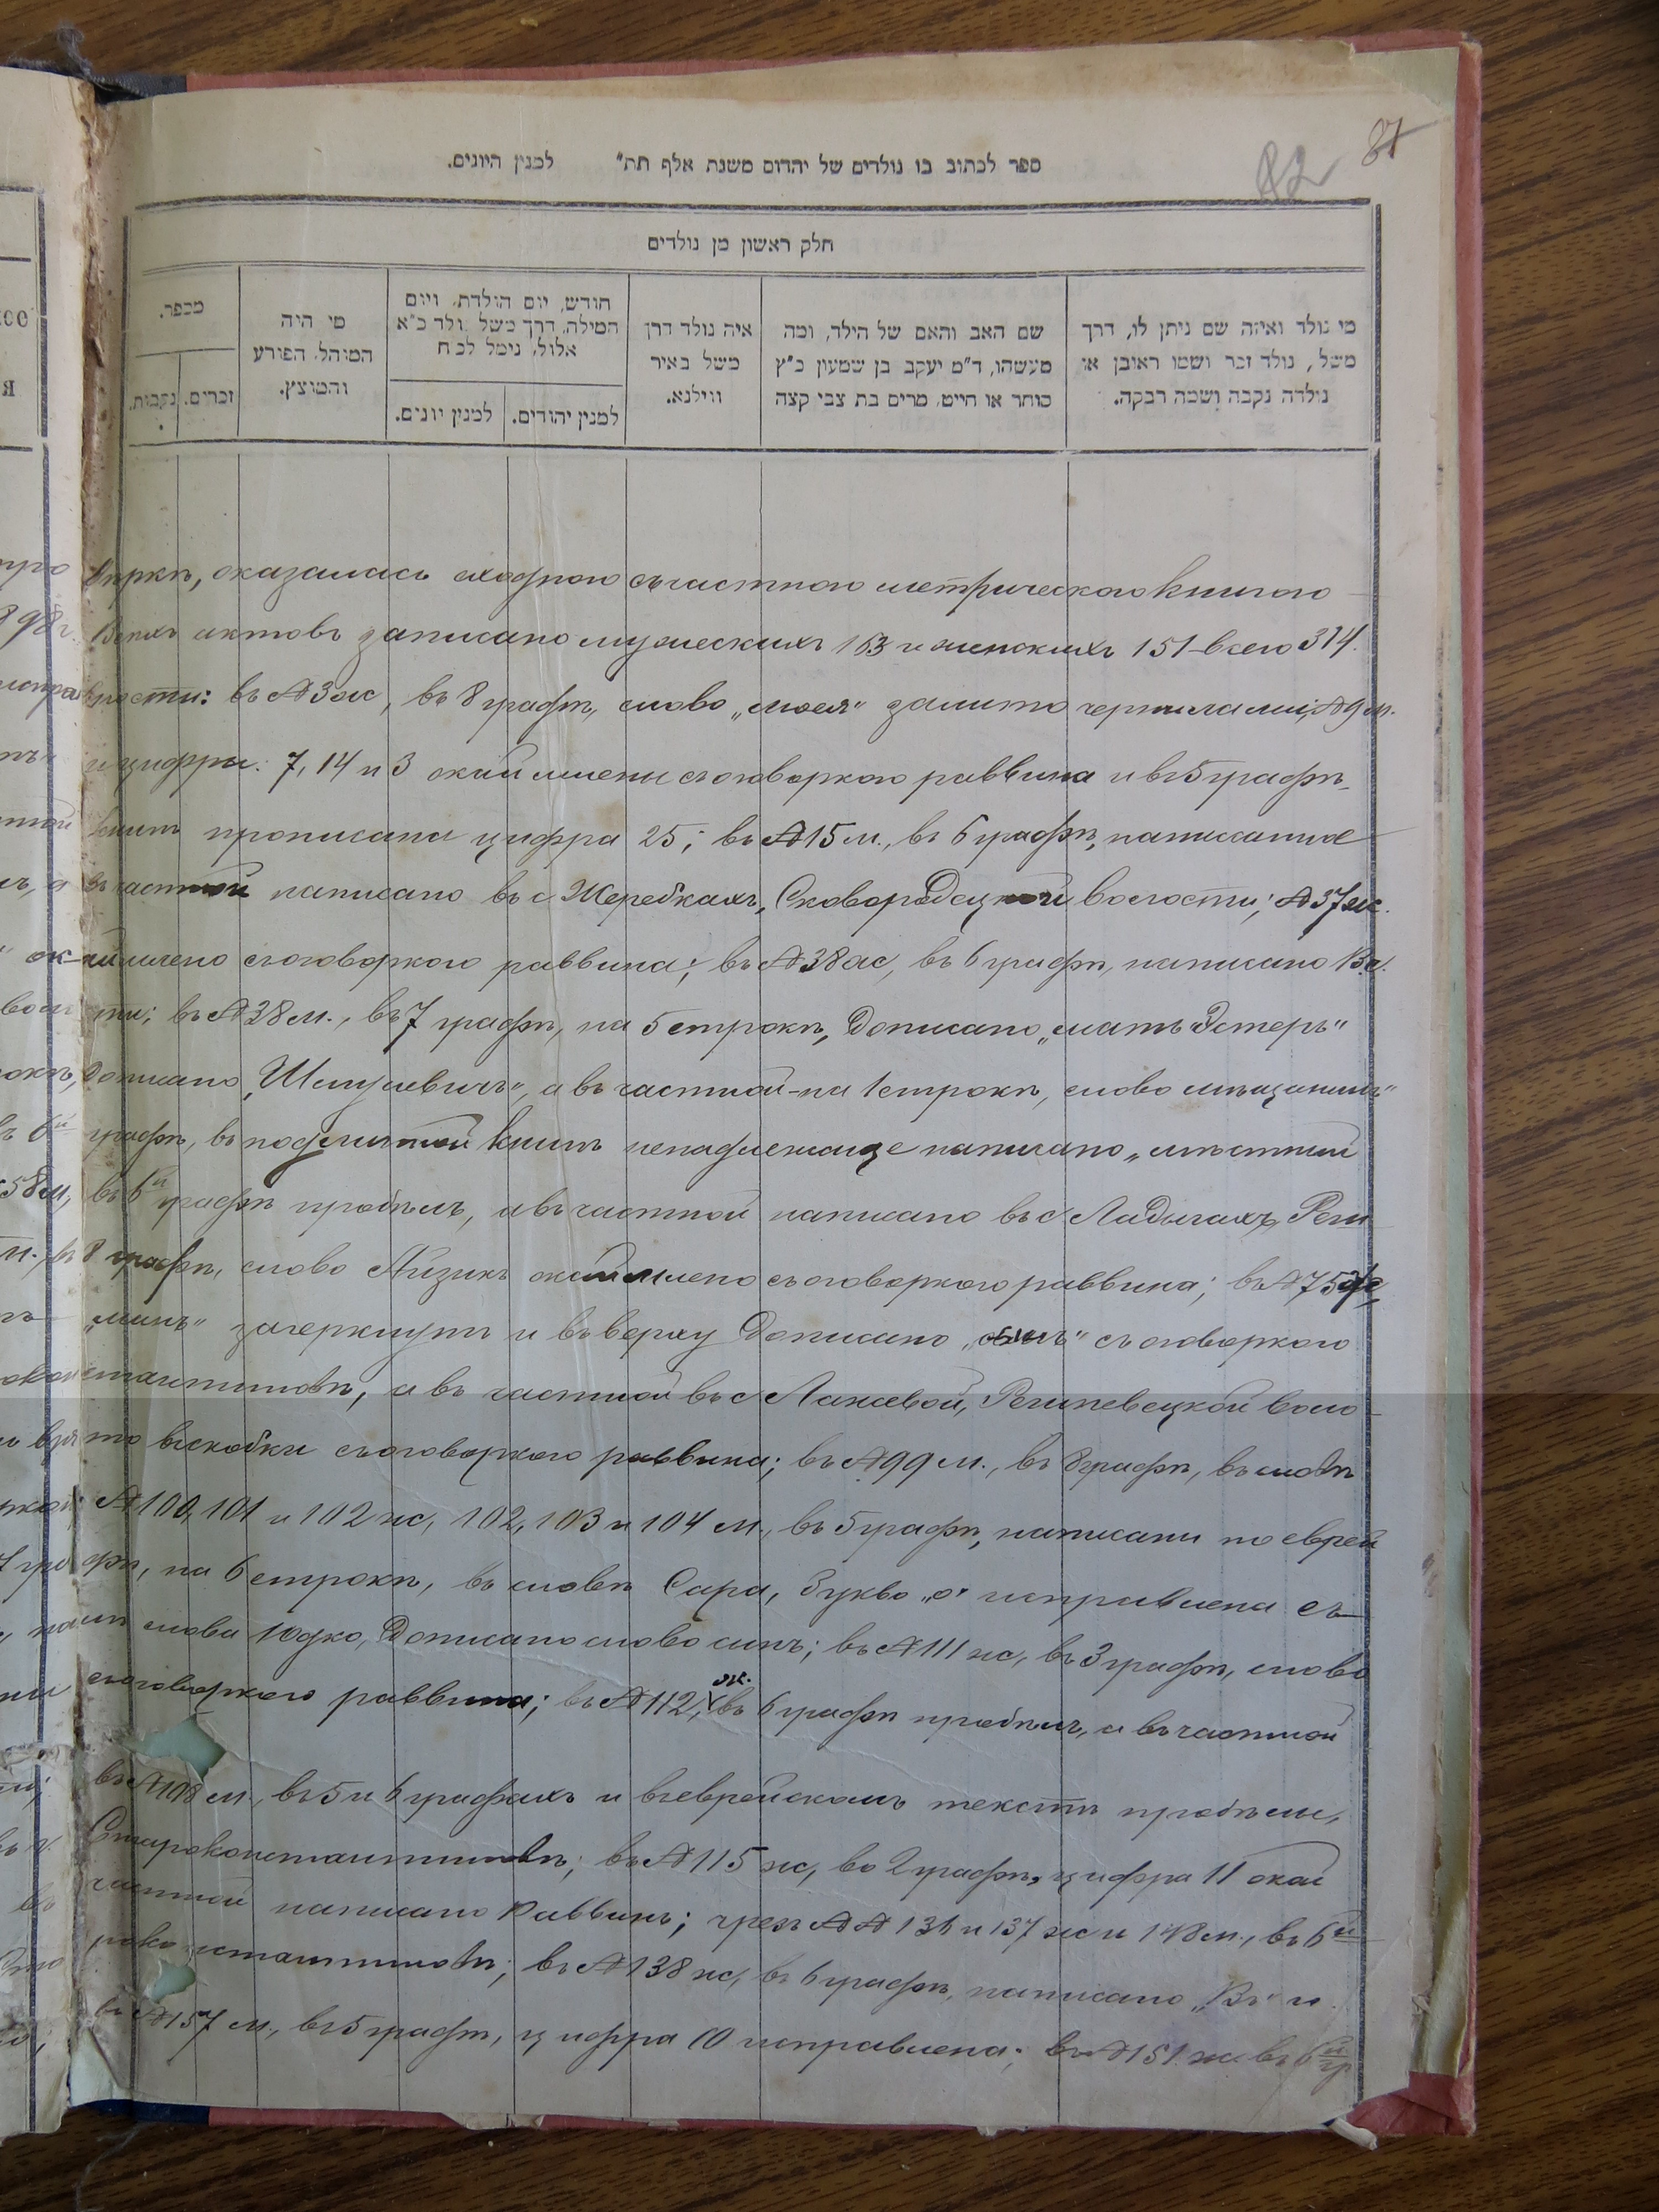 87
82
ספר לכתוב בו נולדים של יהודים משנת אלף תת״ למנין היונים.
חלק ראשון מן נולדים
מי נולד ואיזה שם ניתן לו, דרך משל, נולד זכר ושמו ראובן או נולדה נקבה ושמה רבקה.
שם האב והאם של הילד, ומה מעשהו, ד״מ יעקב בן שמעון כ״ץ סוחר או חייט, מרים בת צבי קצה
איה נולד דרך משל באיר ווילנא.
חודש, יום הולדת, ויום המילה, דרך משל נולד כ״א אלול, נימל לכ״ח
למנין יהודים.
למנין יונים.
מי היה המוהל, הפורע והמוצץ.
מספר.
זכרים.
נקבות.
вѣркѣ, оказалась сходною съ частною метрическою книгою
Всѣхъ актовъ записано мужескихъ 163 и женскихъ 151 – всего 314.
въ № 3 ж, въ 8 графѣ, слово „моел“ залито чернилами; № 9 м.
и цифры: 7, 14 и 3 окаймлены съ оговоркою раввина и въ 5 графѣ
книгѣ прописана цифра 25; въ № 15 м., въ 6 графѣ, написанное
въ частной написано въ с Жеребкахъ, Сковородецкой волости; № 37 ж.
окаймлено съ оговоркою раввина; въ № 38 ж, въ 6 графѣ, написано
сти; въ № 38 м., въ 7 графѣ, на 5 строкѣ, дописано „мать Эстеръ“
дописано „Шмулевичъ“, а въ частной – на 1 строкѣ, слово мѣщанинъ“
графѣ, въ подлинной книгѣ ненадлежаще написано „мѣстный
въ 6й графѣ пробѣлъ, а въ частной написано въ с Ладыгахъ,
8 графѣ, слово Айзикъ окаймлено съ оговоркою раввина; въ № 75 ж,
зачеркнутъ и вверху дописано „сынъ“ съ оговоркою
стантиновѣ, а въ частной въ с Лажевой, Решневецкой воло
то выскобки съ оговоркою раввина; въ № 99 м., въ 8 графѣ, въ словѣ
№ 100, 101 и 102 ж, 102, 103 и 104 м., въ 5 графѣ, написаны по еврей
фѣ, на 6 строкѣ, въ словѣ Сара, буква „а“ исправлена съ
слова Юдко, дописано слово сынъ; въ № 111 ж, въ 3 графѣ, слово
съ оговоркою раввина; въ № 112 ж. въ 6 графѣ пробѣлъ, а въ частной
въ № 108 м., въ 5 и 6 графахъ и въ еврейскомъ текстѣ пробѣлы,
Староконстантиновѣ; въ № 115 ж, во 2 графѣ, цифра 11 окай
частной написано Раввинъ; чрезъ №№ 136 и 137 ж и 148 м., въ 6й
роконстантиновѣ; въ № 138 ж, въ 6 графѣ, написано „Въ“ и
въ № 157 м., въ 5 графѣ, цифра 10 исправлена; въ № 151 ж въ 6й гр